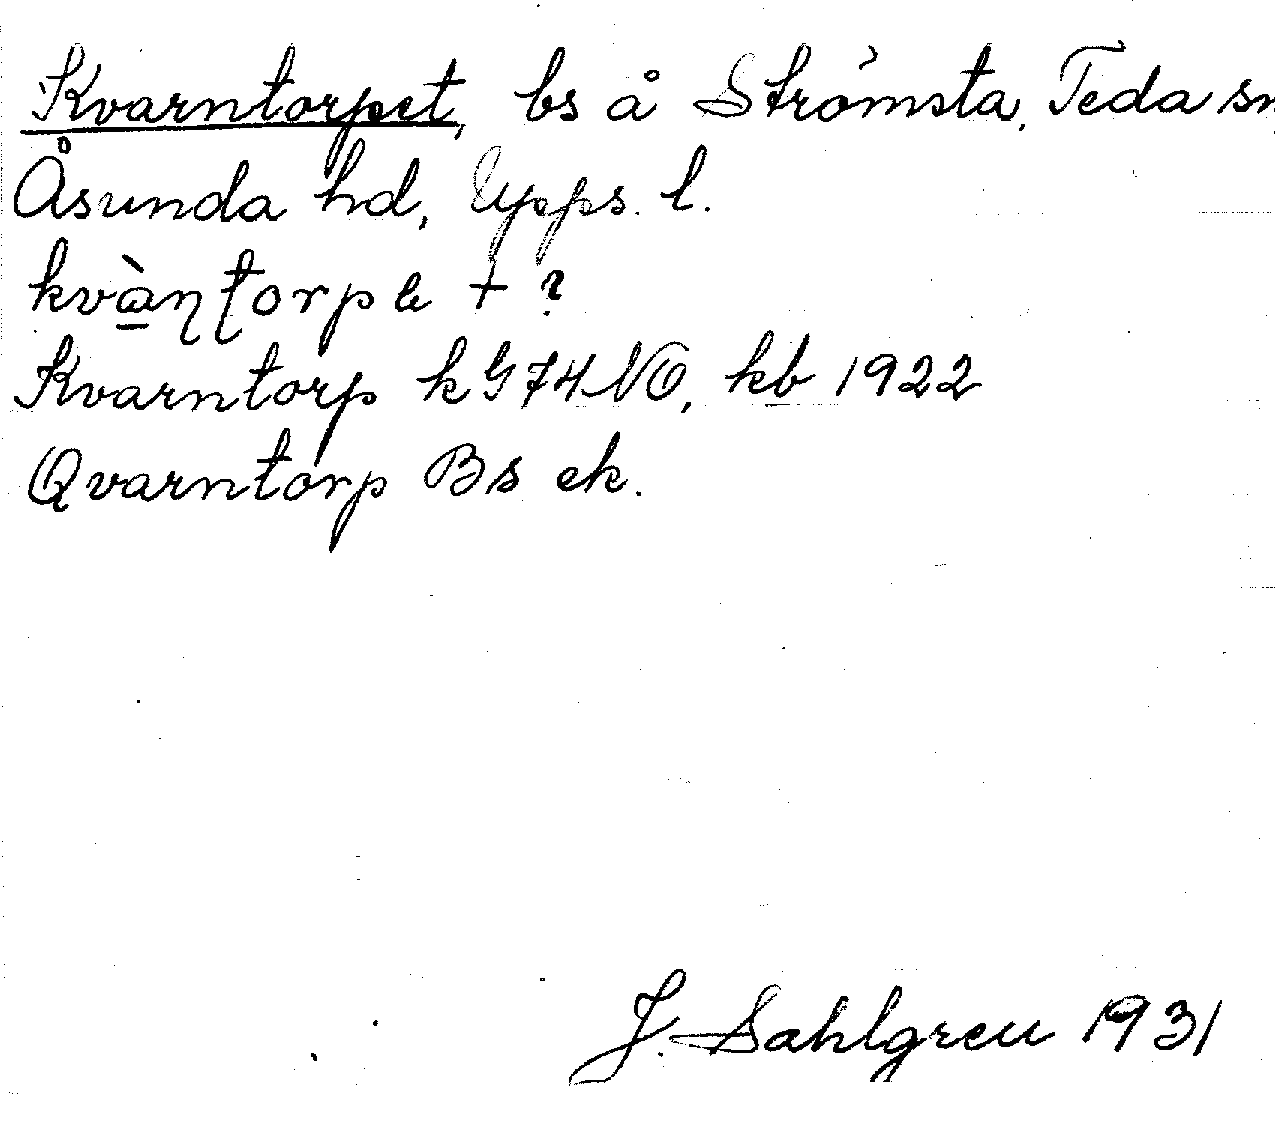 Kvarntorpet, bs å Strömsta, Teda sn,
Åsunda hd, Upps. l.
kvàɳʈorp
Kvarntorp k G74NO, kb 1922
Qvarntorp Bs ek.
J. Sahlgren 1931